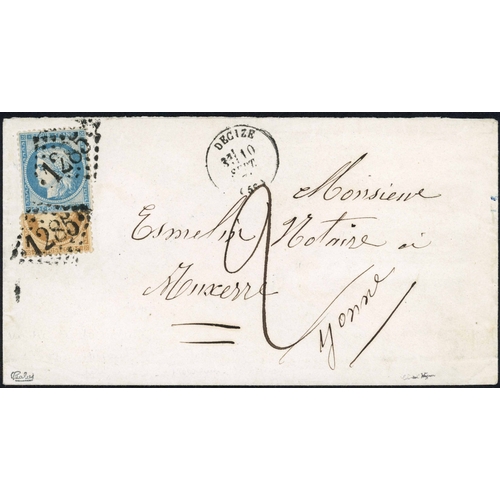 1285
1285
DECIZE
10
SEPT
2
Monsieur
Esmelin Notaire à
Auxerre
Yonne